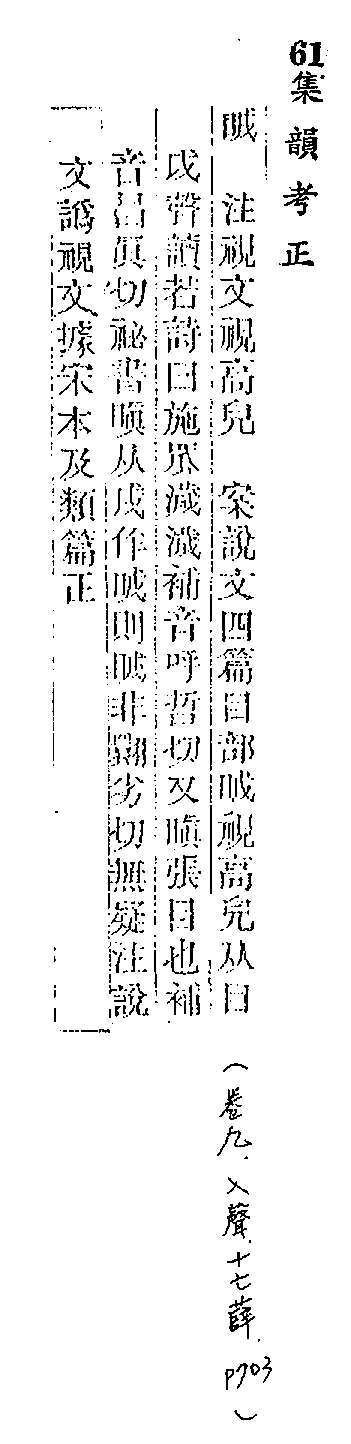 61集韻考正
眓 注視文視高皃 案說文四篇目部眓視高皃从目
戉聲讀若詩曰施罛濊濊補音呼哲切又瞋張目也補
音昌眞切祕書瞋从戌作眓則眓非翾劣切無疑注說
文譌視文據宋本及類篇正
(卷九.入聲.十七薛.p703)